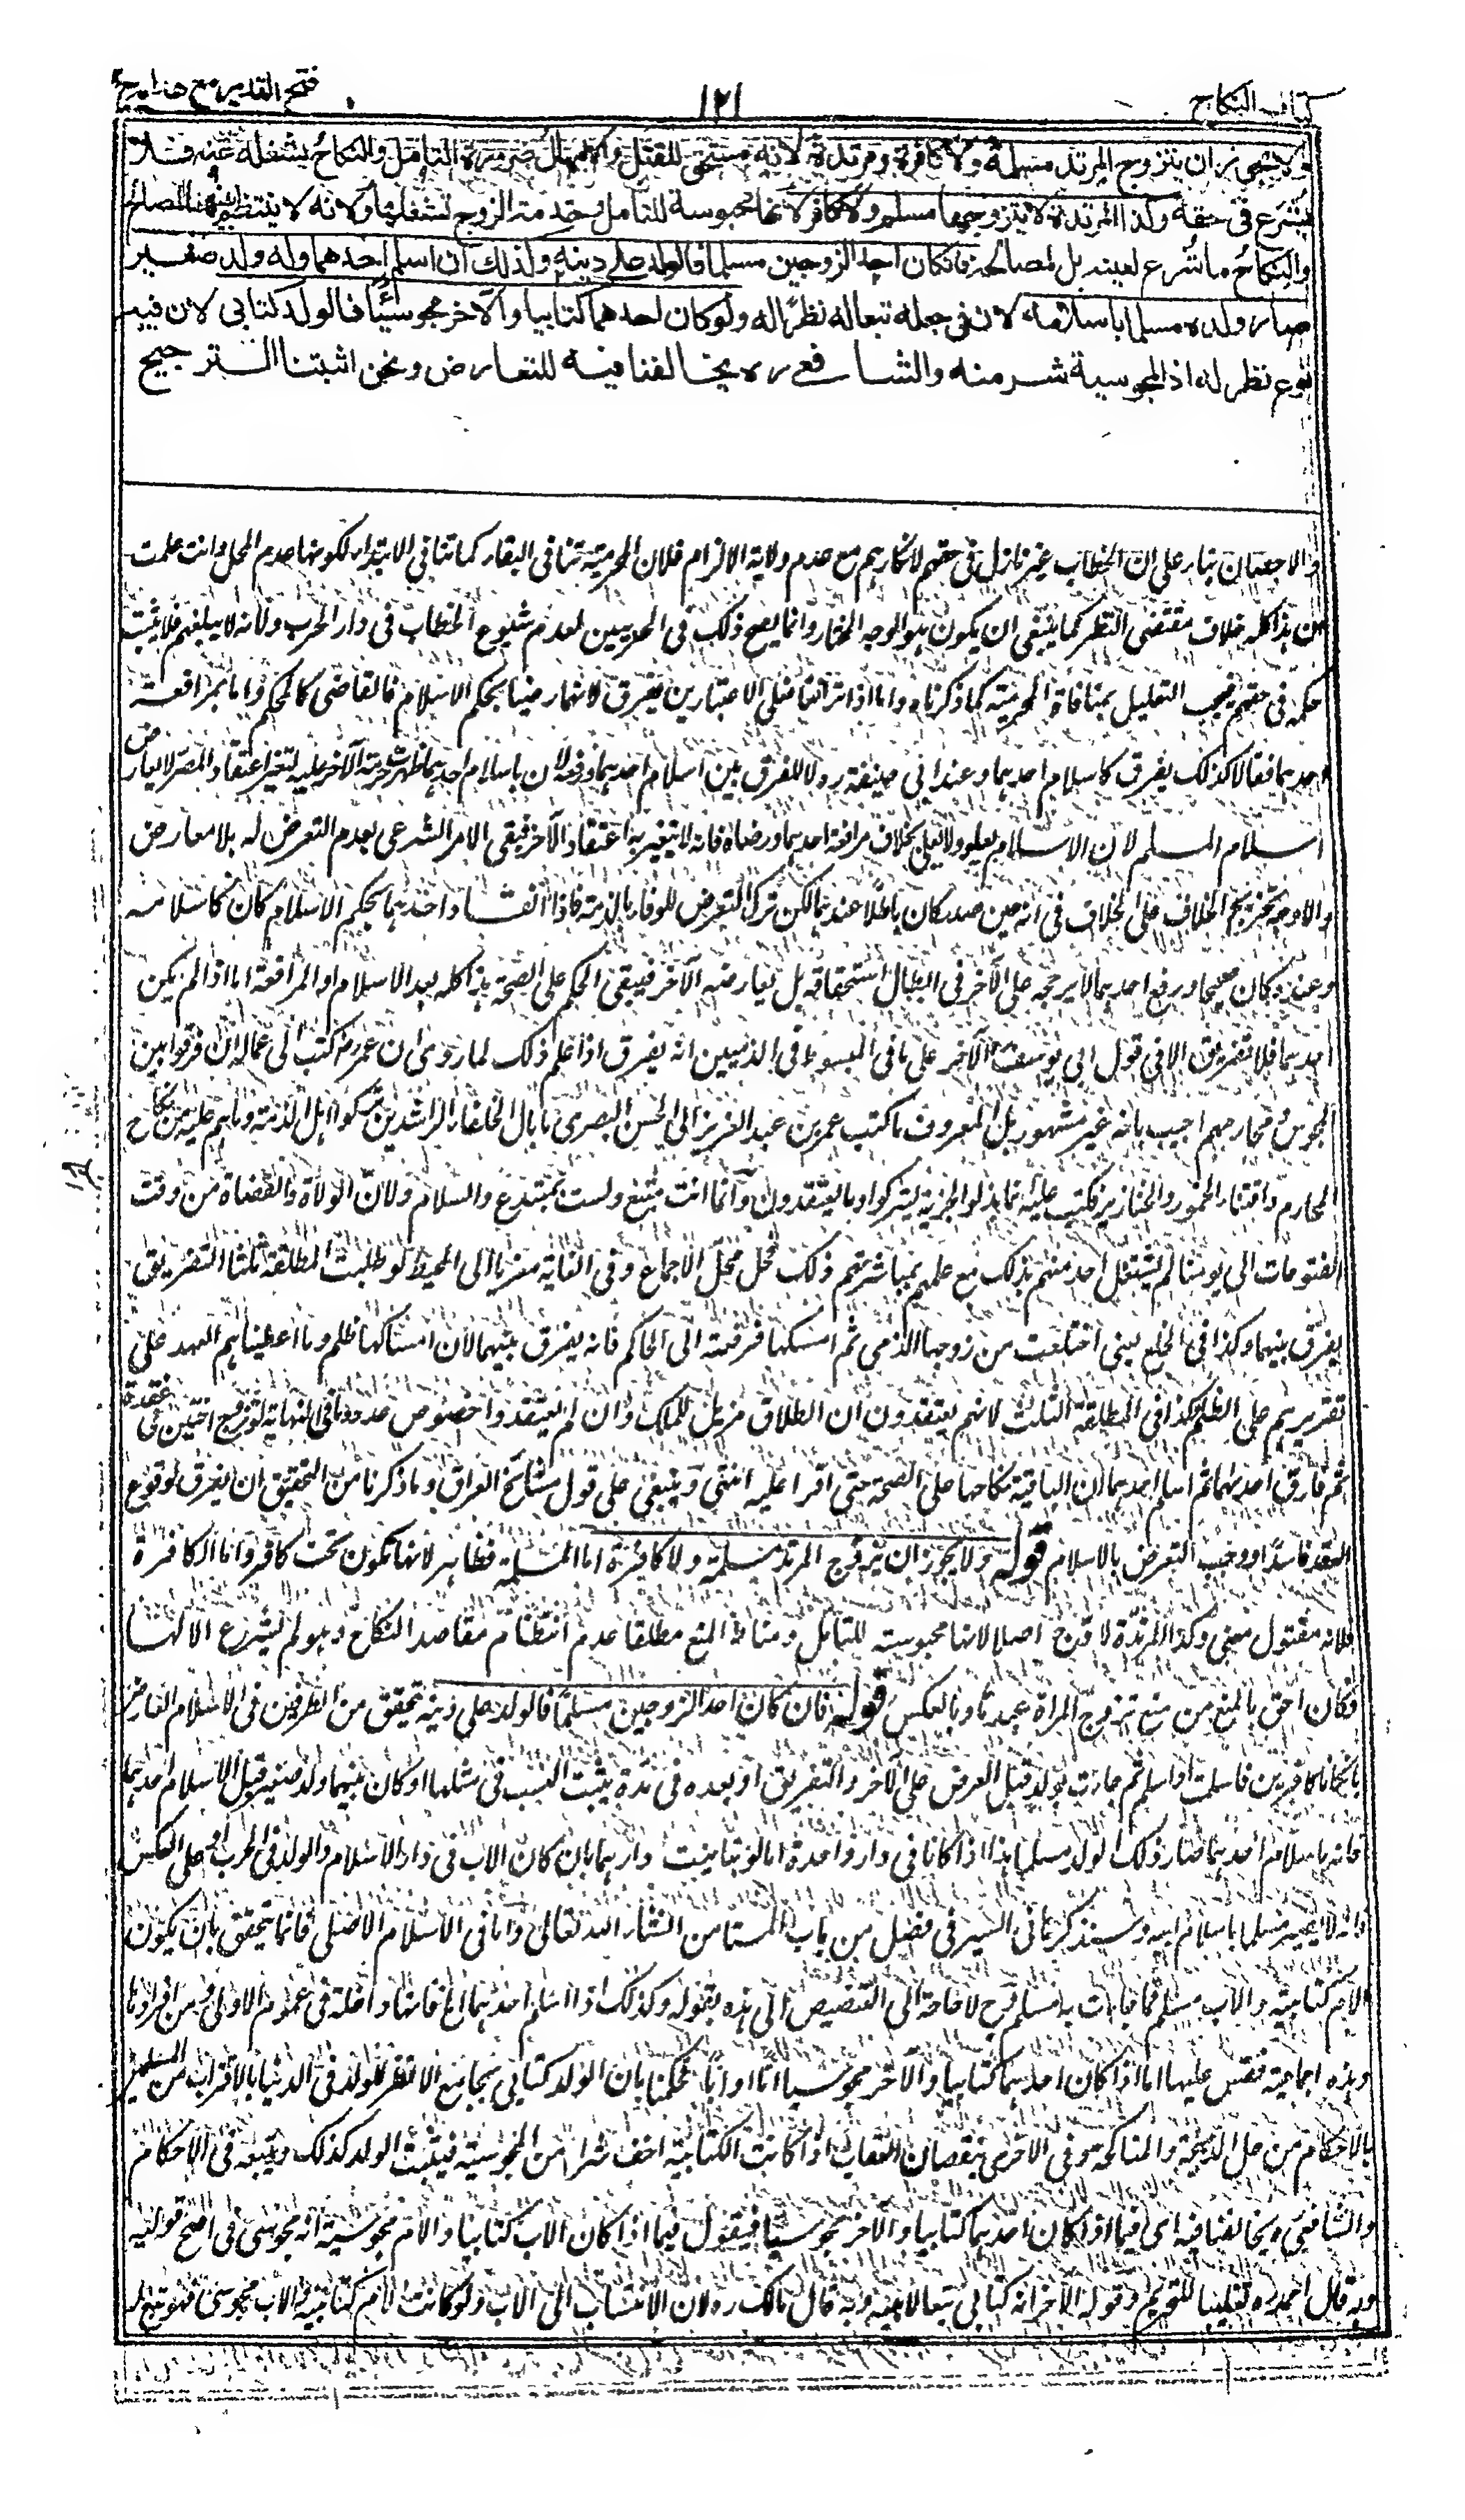 كتاب النكاح
١٢١
فتح القدير مع هدايه ج٢
ولا يجوز ان يتزوج المرتد مسلمة ولا كافرة ومرتدة لانه مستحق للقتل والامهال ضرورة التامل والنكاح يشغله عنه فلا
يشرع فى حقه وكذا المرتدة لا يتزوجها مسلم ولا كافر لانها محبوسة للتامل وخدمة الزوج تشغلها ولانه لا ينتظم بينهما المصالح
والنكاح ما شرع لعينه بل لمصالحه فان كان احد الزوجين مسلما فالولد على دينه وكذلك ان اسلم احدهما وله ولد صغير
صار ولده مسلما باسلامه لان فى جعله تبعا له نظرا له ولو كان احدهما كتابيا والآخر مجوسيا فالولد كتابى لان فيه
نوع نظر له اذ المجوسية شر منه والشافعى ره يخالفنا فيه للتعارض ونحن اثبتنا الترجيح
والاحصان بناء على ان الخطاب غير نازل فى حقهم لانكارهم مع عدم ولاية الالزام فلان المحرمية تنافى البقاء كما تنافى الابتداء لكونها عدم المحل وانت علمت
ان هذا كله خلاف مقتضى النظر كما ينبغى ان يكون هو الوجه المختار وانما يصح ذلك فى الحربيين لعدم شيوع الخطاب فى دار الحرب ولانه لا يبلغهم فلا يثبت
حكمه فى حقهم فيجب التعليل بمنافاة المحرمية كما ذكرناه واما اذا ترافعا فعلى الاعتبارين يفرق لانهما رضيا بحكم الاسلام فالقاضى كالمحكم واما بمرافعة
احدهما فقالا كذلك يفرق كاسلام احدهما وعند ابى حنيفة ره لا للفرق بين اسلام احدهما ورفعه لان باسلام احدهما ظهرت حرمة الآخر عليه لتغير اعتقاده المصر لا يعارض
اسلام المسلم لان الاسلام يعلو ولا يعلى بخلاف مرافعة احدهما ورضاه فانه لا يتغير به اعتقاد الآخر فيبقى الامر الشرعى بعدم التعرض له بلا معارض
والاوجه تخريج الخلاف على الخلاف فى انه حين صدر كان باطلا عندهما لكن ترك التعرض للوفاء بالذمة فاذا انقاد احدهما لحكم الاسلام كان كاسلامه
وعنده كان صحيحا ورفع احدهما لا يرجحه على الآخر فى ابطال استحقاقه بل يعارضه الآخر فيبقى الحكم على الصحة هذا كله بعد الاسلام او المرافعة اما اذا لم يكن
احدهما فلا تفريق الا فى قول ابى يوسف الآخر على ما فى المبسوط فى الذميين انه يفرق اذا علم ذلك لما روى ان عمر كتب الى عماله ان فرقوا بين
المجوس ومحارمهم اجيب بانه غير مشهور بل المعروف ما كتب عمر بن عبد العزيز الى الحسن البصرى ما بال الخلفاء الراشدين تركوا اهل الذمة وما هم عليه من نكاح
المحارم واقتناء الخمور والخنازير فكتب عليه انما بذلوا الجزية ليتركوا وما يعتقدون وانما انت متبع ولست بمبتدع والسلام ولان الولاة والقضاة من وقت
الفتوحات الى يومنا لم يشتغل احد منهم بذلك مع علمهم بمباشرتهم ذلك فحل محل الاجماع وفى الغاية معزيا الى المحيط لو طلبت المطلقة ثلثا التفريق
يفرق بينهما وكذا فى الخلع يعنى اختلعت من زوجها الذمى ثم امسكها فرفعته الى الحاكم فانه يفرق بينهما لان امساكها ظلم وما اعطيناهم العهد على
تقريرهم على الظلم وكذا فى المطلقة الثلث لانهم يعتقدون ان الطلاق مزيل للملك وان لم يعتقدوا خصوص عدد وفى النهاية لو تزوج اختين فى عقدة
ثم فارق احدهما ثم اسلم احدهما ان الباقية نكاحها على الصحة حتى اقرا عليه انتهى وينبغى على قول مشائخ العراق وما ذكرنا من التحقيق ان يفرق لوقوع
العقد فاسدا ووجب التعرض بالاسلام قوله ولا يجوز ان يتزوج المرتد مسلمة ولا كافرة اما المسلمة فظاهر لانها تكون تحت كافر واما الكافرة
فلانه مقتول معنى وكذا المرتدة لا تزوج اصلا لانها محبوسة للتامل ومناط المنع مطلقا عدم انتظام مقاصد النكاح وهو لم يشرع الا لها
فكان احق بالمنع من منع تزوج المرأة عبدها وبالعكس قوله فان كان احد الزوجين مسلما فالولد على دينه يتحقق من الطرفين فى الاسلام العارض
بان كانا كافرين فاسلمت او اسلم ثم جاءت بولد قبل العرض على الآخر والتفريق او بعده فى مدة يثبت النسب فى مثلها او كان بينهما ولد صغير قبل الاسلام احدهما
فانه باسلام احدهما صار ذلك الولد مسلما هذا اذا كانا فى دار واحدة اما لو تباينت دارهما بان كان الاب فى دار الاسلام والولد فى الحرب او على العكس
فانه لا يصير مسلما باسلام ابيه وسنذكرها فى السير فى فصل من باب المستامن انشاء الله تعالى واما فى الاسلام الاصلى فانما يتحقق بان يكون
الام كتابية والاب مسلم فما جاءت به مسلم فرع لا حاجة الى التنصيص الى هذه بقوله وكذلك اذا اسلم احدهما الخ فانها داخلة فى عموم الاولى ومن افرادها
وهذه اجماعية فقيس عليها ما اذا كان احدهما كتابيا والآخر مجوسيا اما او ابا فحكمنا بان الولد كتابى بجامع الانظر للولد فى الدنيا بالاقتراب من المسلمين
بالاحكام من حل الذبيحة والمناكحة وفى الاخرى بنقصان العقاب اذا كانت الكتابية اخف شرا من المجوسية فيثبت الولد كذلك ويتبعه فى الاحكام
والشافعى ره يخالفنا فيه اى فيما اذا كان احدهما كتابيا والآخر مجوسيا فيقول فيما اذا كان الاب كتابيا والام مجوسية انه مجوسى فى اصح قوليه
وبه قال احمد ره تغليبا للتحريم وقوله الآخر انه كتابى تبعا لابيه وبه قال مالك ره لان الانتساب الى الاب ولو كانت الام كتابية والاب مجوسى فهو تبع له